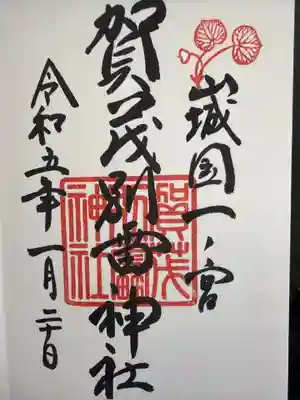 山城国一ノ宮
賀茂別雷神社
令和五年一月二十日
賀茂
別雷
神社